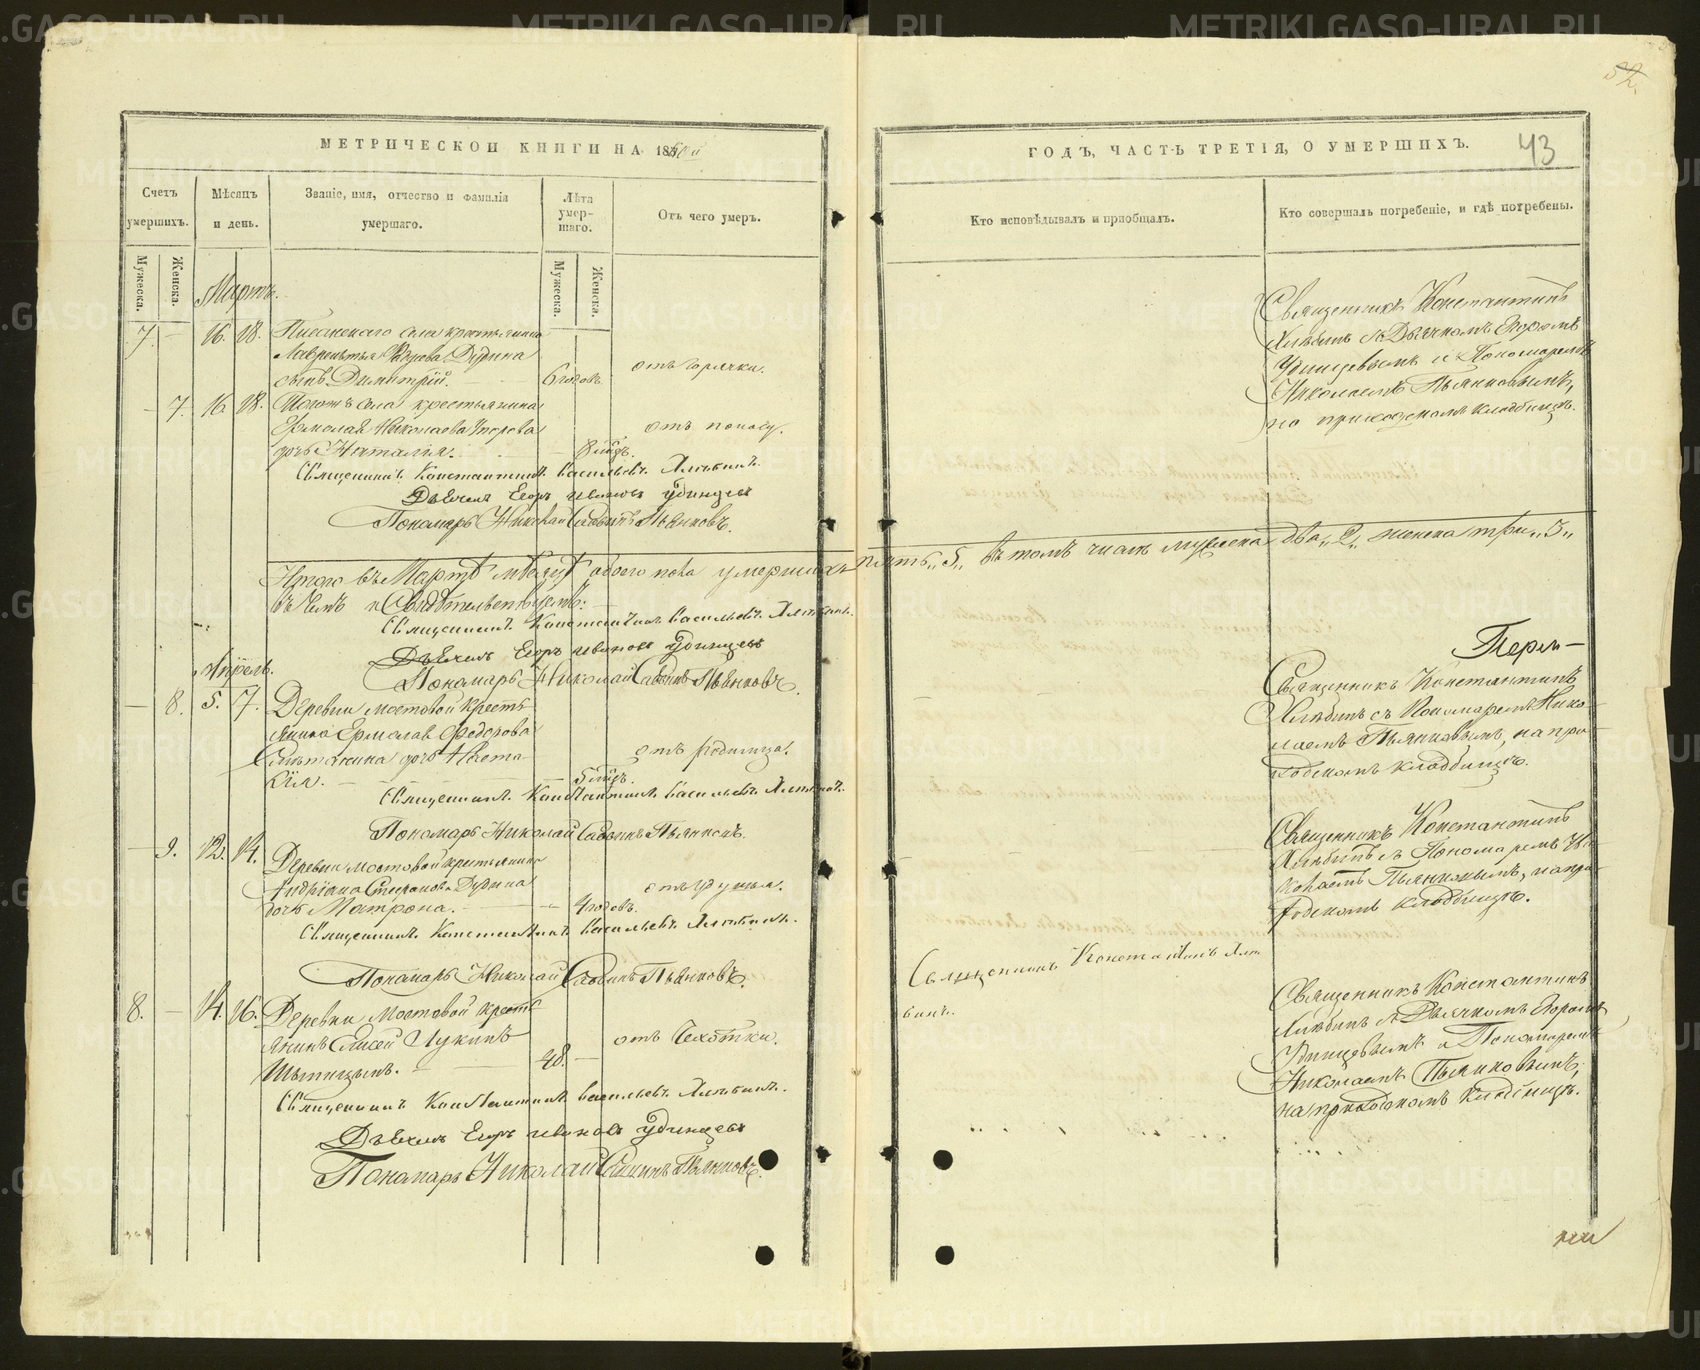 METRIKI.GASO-URAL.RU
52.
43
МЕТРИЧЕСКОЙ КНИГИ НА 18
ГОДЪ, ЧАСТЬ ТРЕТІЯ, О УМЕРШИХЪ.
Счетъ умершихъ.
Мѣсяцъ и день.
Званіе, имя, отчество и фамилія умершаго.
Лѣта умершаго.
Отъ чего умеръ.
Кто исповѣдывалъ и пріобщалъ.
Кто совершалъ погребеніе, и гдѣ погребены.
Мужеска.
Женска.
Мужеска.
Женска.
Мартъ.
7. — 16. 18. села крестьянина
Лаврентья Дудина
сынъ Димитрій. 6 годовъ.
отъ горячки.
Священникъ Константинъ
Хлѣбинъ съ Дьячкомъ Егоромъ
Удинцевымъ и Пономаремъ
Николаемъ Пьянковымъ,
на приходскомъ кладбищѣ.
— 7. 16. 18. села крестьянина
Ермолая Николаева
дочь Наталія. 8 мѣцъ.
отъ поносу.
Священникъ Константинъ Васильевъ Хлѣбинъ.
Дьячекъ Егоръ Ивановъ Удинцевъ
Пономарь Николай Савинъ Пьянковъ.
Итого въ Мартѣ мѣсяцѣ обоего пола умершихъ пять „5„ въ томъ числѣ мужеска два „2„ женска три „3„
въ чемъ и Свидѣтельствуемъ:
Священникъ Константинъ Васильевъ Хлѣбинъ.
Дьячекъ Егоръ Ивановъ Удинцевъ
Пономарь Николай Савинъ Пьянковъ.
Перм-
Апрѣль.
— 8. 5. 7. Деревни Мостовой кресть-
янина Ермолая Федорова
дочь Анаста-
сія. 5 мѣцъ.
отъ родимца.
Священникъ Константинъ
Хлѣбинъ съ Пономаремъ Нико-
лаемъ Пьянковымъ, на при-
ходскомъ кладбищѣ.
Священникъ Константинъ Васильевъ Хлѣбинъ.
Пономарь Николай Савинъ Пьянковъ.
— 9. 12. 14. Деревни Мостовой крестьянина
Андріана Спиридонова Дудина
дочь Матрона. 4 годовъ.
отъ удушья.
Священникъ Константинъ
Хлѣбинъ съ Пономаремъ Ни-
колаемъ Пьянковымъ, на при-
ходскомъ кладбищѣ.
Священникъ Константинъ Васильевъ Хлѣбинъ.
Пономарь Николай Савинъ Пьянковъ.
8. — 14. 16. Деревни Мостовой кресть-
янинъ Елисей Лукинъ
48.
отъ Чехотки.
Священникъ Константинъ Хлѣ-
бинъ.
Священникъ Константинъ
Хлѣбинъ съ Дьячкомъ Егоромъ
Удинцевымъ и Пономаремъ
Николаемъ Пьянковымъ,
на приходскомъ кладбищѣ.
Священникъ Константинъ Васильевъ Хлѣбинъ.
Дьячекъ Егоръ Ивановъ Удинцевъ
Пономарь Николай Савинъ Пьянковъ.